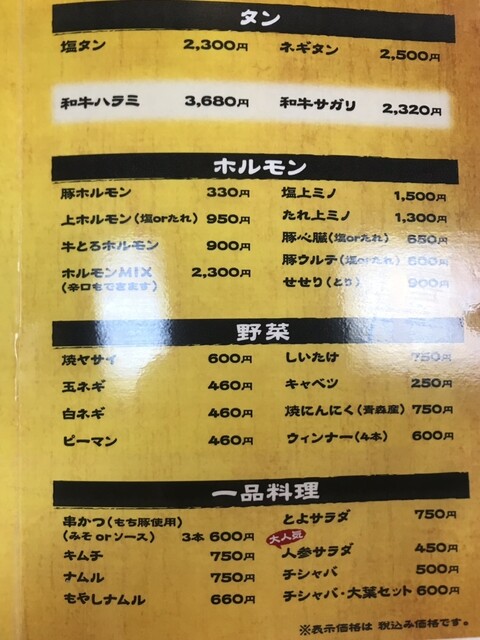 タン
塩タン 2,300円 ネギタン 2,500円
和牛ハラミ 3,680円 和牛サガリ 2,320円
ホルモン
豚ホルモン 330円 塩上ミノ 1,500円
上ホルモン(塩orたれ) 950円 たれ上ミノ 1,300円
牛とろホルモン 900円 豚心臓(塩orたれ) 650円
ホルモンMIX 2,300円 豚ウルテ(塩orたれ) 600円
(辛口もできます) せせり(とり) 900円
野菜
焼ヤサイ 600円 しいたけ 750円
玉ネギ 460円 キャベツ 250円
白ネギ 460円 焼にんにく(青森産) 750円
ピーマン 460円 ウィンナー(4本) 600円
一品料理
串かつ(もち豚使用) とよサラダ 750円
(みそ orソース) 3本 600円 大人気
キムチ 750円 人参サラダ 450円
ナムル 750円 チシャバ 500円
もやしナムル 660円 チシャバ・大葉セット 600円
※表示価格は 税込み価格です。